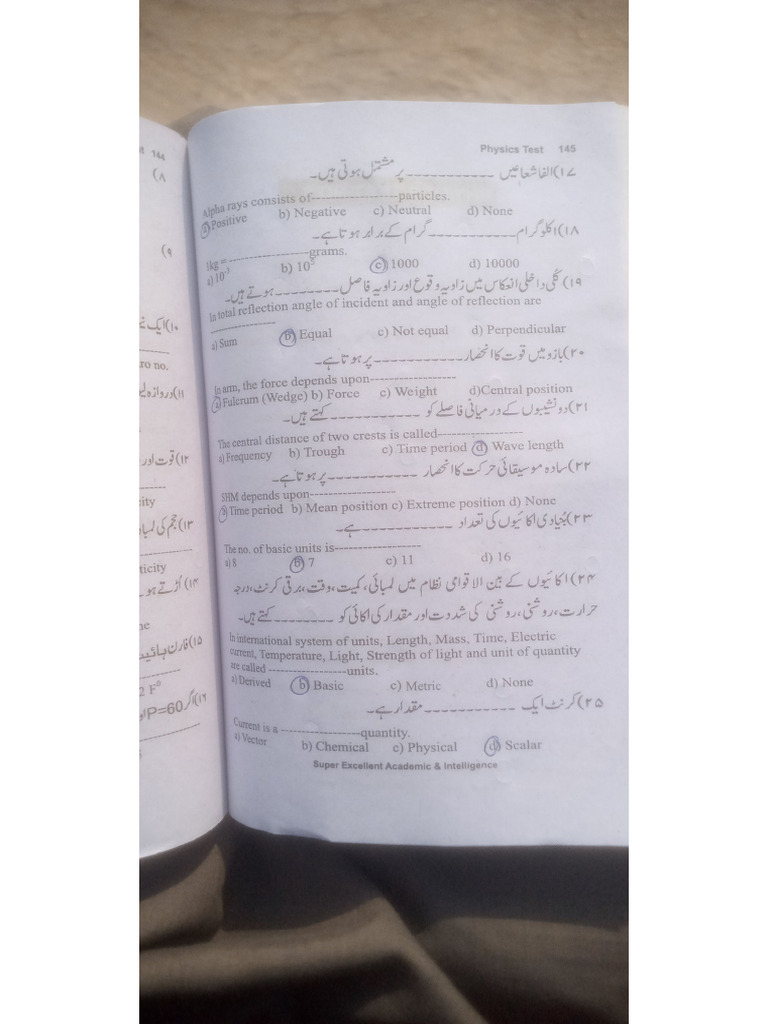 Physics Test 145
۱۷) الفا شعاعیں ------------ پر مشتمل ہوتی ہیں۔
Alpha rays consists of------------------particles.
a) Positive b) Negative c) Neutral d) None
۱۸) اکلوگرام ------------ گرام کے برابر ہوتا ہے۔
1kg = -----------------grams.
a) 10⁻³ b) 10⁵ c) 1000 d) 10000
۱۹) کُلی داخلی انعکاس میں زاویہ وقوع اور زاویہ فاصل -------- ہوتے ہیں۔
In total reflection angle of incident and angle of reflection are
--------------
a) Sum b) Equal c) Not equal d) Perpendicular
۲۰) بازو میں قوت کا انحصار ------------ پر ہوتا ہے۔
In arm, the force depends upon------------------
a) Fulcrum (Wedge) b) Force c) Weight d)Central position
۲۱) دو نشیبوں کے درمیانی فاصلے کو ------------ کہتے ہیں۔
The central distance of two crests is called------------------
a) Frequency b) Trough c) Time period d) Wave length
۲۲) سادہ موسیقائی حرکت کا انحصار ------------ پر ہوتا ہے۔
SHM depends upon------------------
a) Time period b) Mean position c) Extreme position d) None
۲۳) بُنیادی اکائیوں کی تعداد ------------ ہے۔
The no. of basic units is------------------
a) 8 b) 7 c) 11 d) 16
۲۴) اکائیوں کے بین الاقوامی نظام میں لمبائی، کمیت، وقت، برقی کرنٹ، درجہ
حرارت، روشنی، روشنی کی شدوت اور مقدار کی اکائی کو -------- کہتے ہیں۔
In international system of units, Length, Mass, Time, Electric
current, Temperature, Light, Strength of light and unit of quantity
are called -----------------units.
a) Derived b) Basic c) Metric d) None
۲۵) کرنٹ ایک ------------ مقدار ہے۔
Current is a -----------------quantity.
a) Vector b) Chemical c) Physical d) Scalar
Super Excellent Academic & Intelligence
144
۸)
۹)
۱۰) ایک
ro no.
۱۱) دروازہ
۱۲) قوت اور
city
۱۳) حجم کی
ticity
۱۴) اُڑتے ہو
ne
۱۵) فارن ہائیٹ
2 F⁰
۱۶) اگر P=60